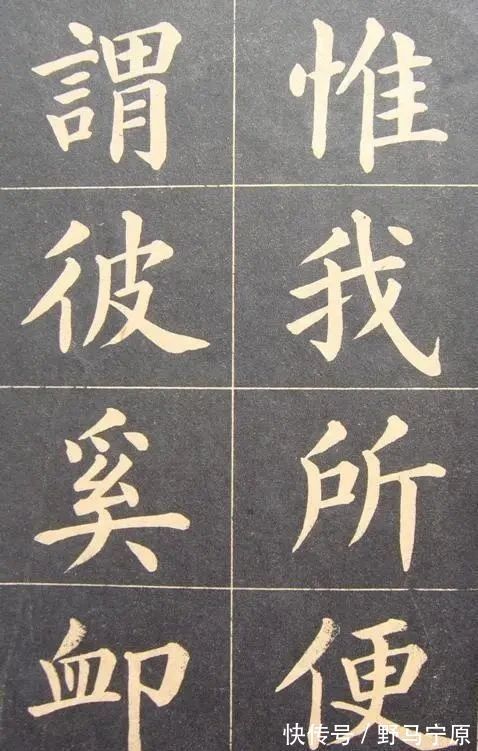 惟我所便
謂彼奚卹
快传号/野马宁原